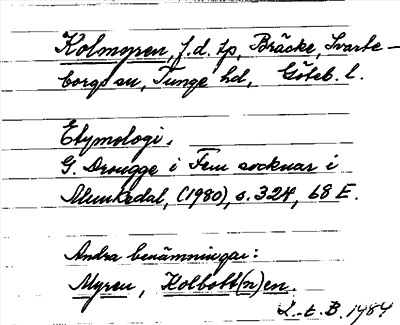 Kolmyren, f.d. tp, Bräcke, Svarte-
borgs sn, Tunge hd, Göteb. l.
Etymologi.
G. Drougge i Fem socknar i
Munkedal, (1980), s. 324, 68 E.
Andra benämningar:
Myren, Kolbott(n)en.
L.t.B. 1984